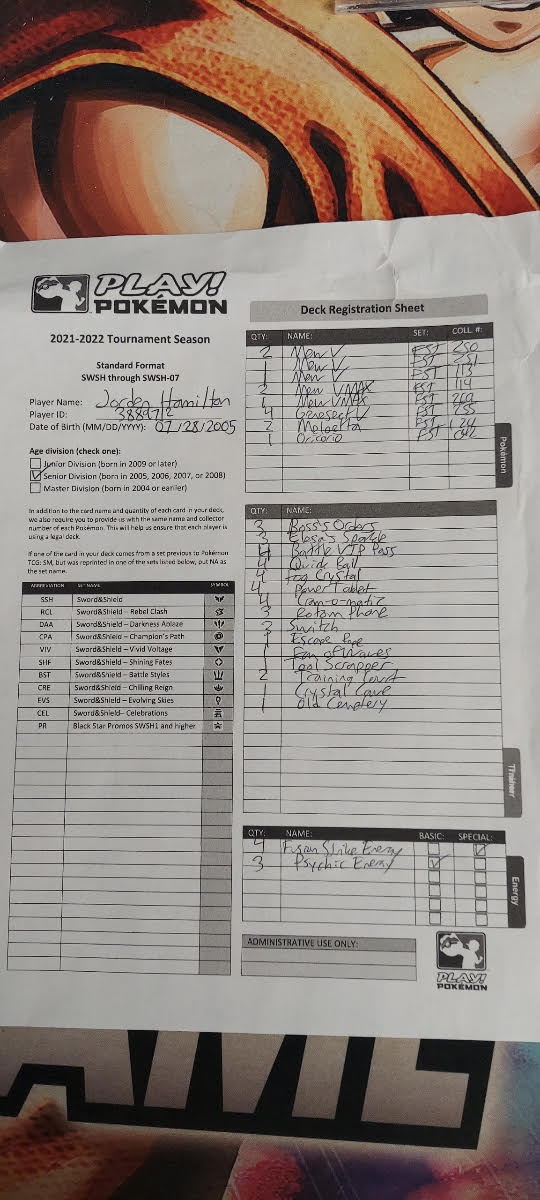 PLAY!
POKÉMON
Deck Registration Sheet
2021-2022 Tournament Season
Standard Format
SWSH through SWSH-07
Player Name: Jorden Hamilton
Player ID: 3888972
Date of Birth (MM/DD/YYYY): 07/28/2005
Age division (check one):
Junior Division (born in 2009 or later)
Senior Division (born in 2005, 2006, 2007, or 2008)
Master Division (born in 2004 or earlier)
In addition to the card name and quantity of each card in your deck,
we also require you to provide us with the same name and collector
number of each Pokémon. This will help us ensure that each player is
using a legal deck.
If one of the card in your deck comes from a set previous to Pokémon
TCG: SM, but was reprinted in one of the sets listed below, put NA as
the set name.
ABBREVIATION SET NAME SYMBOL
SSH Sword&Shield
RCL Sword&Shield – Rebel Clash
DAA Sword&Shield – Darkness Ablaze
CPA Sword&Shield – Champion's Path
VIV Sword&Shield – Vivid Voltage
SHF Sword&Shield – Shining Fates
BST Sword&Shield – Battle Styles
CRE Sword&Shield – Chilling Reign
EVS Sword&Shield – Evolving Skies
CEL Sword&Shield– Celebrations
PR Black Star Promos SWSH1 and higher
QTY: NAME: SET: COLL. #:
2 Mew V FST 250
1 Mew V FST 251
1 Mew V FST 113
2 Mew VMAX FST 114
4 Mew VMAX FST
4 Genesect V FST 255
2 Meloetta FST 124
1 Oricorio FST 042
Pokémon
QTY: NAME:
3 Boss's Orders
3 Elesa's Sparkle
4 Battle VIP Pass
4 Quick Ball
4 Fog Crystal
4 Power Tablet
4 Cram-o-matic
3 Rotom Phone
Switch
1 Escape Rope
1 Fan of Waves
1 Tool Scrapper
2 Training Court
1 Crystal Cave
1 Old Cemetery
Trainer
QTY: NAME: BASIC: SPECIAL:
4 Fusion Strike Energy
3 Psychic Energy
Energy
ADMINISTRATIVE USE ONLY:
PLAY!
POKÉMON